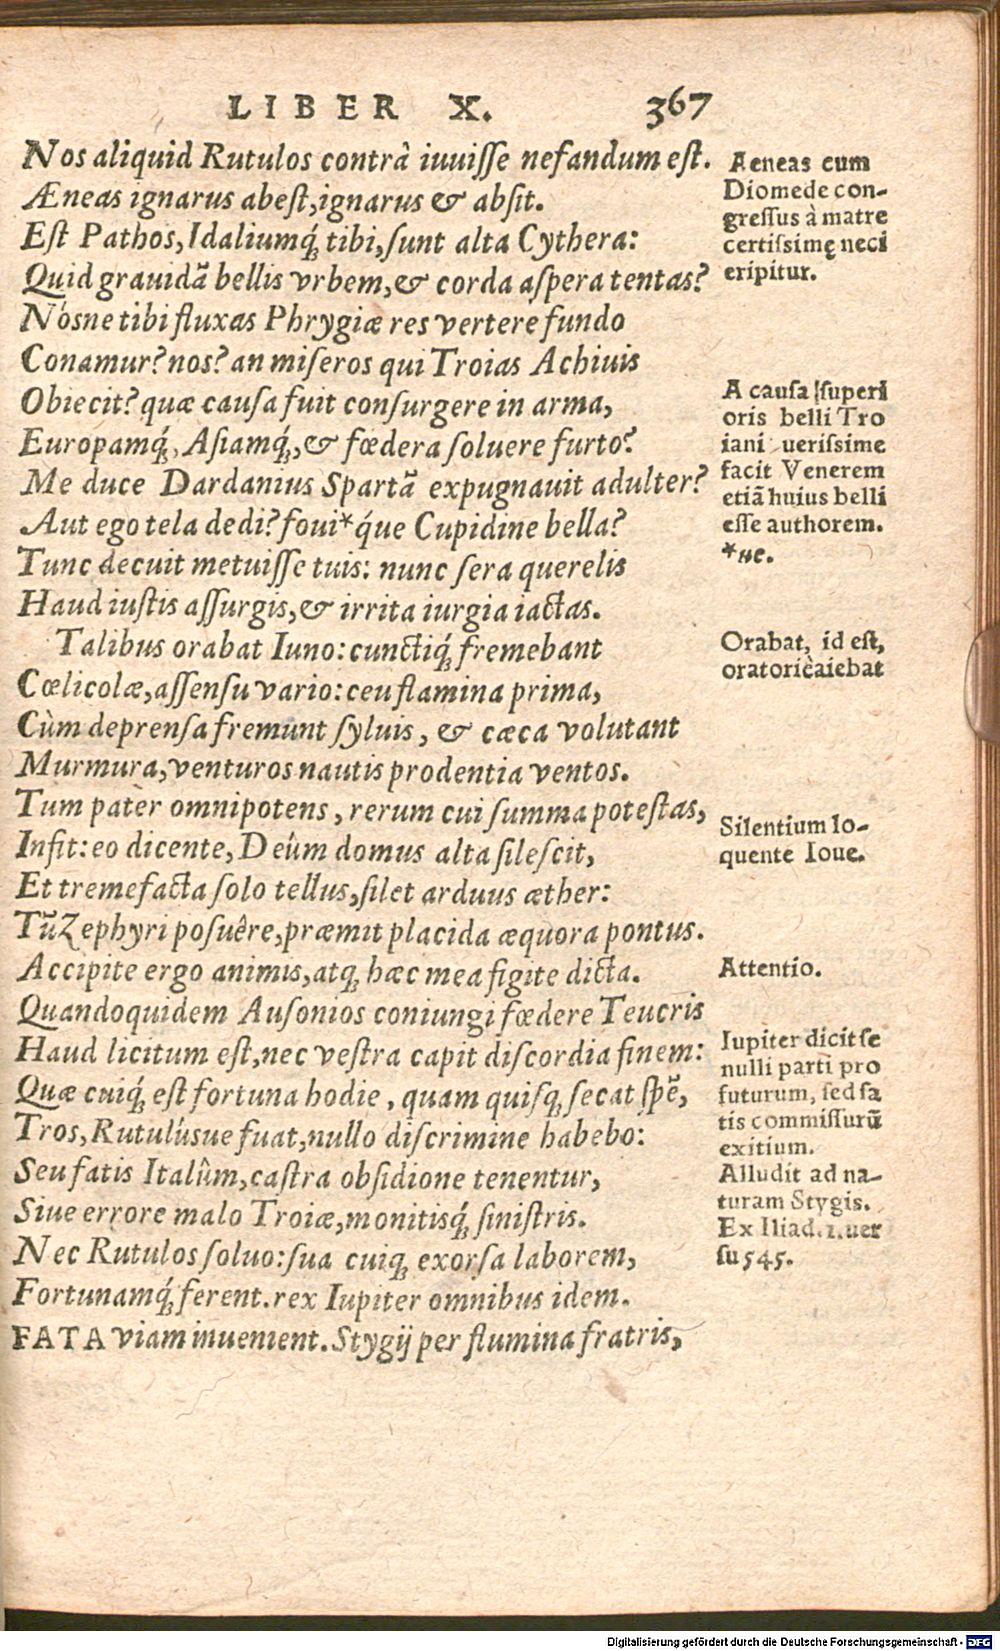 LIBER X. 367
Nos aliquid Rutulos contrà iuuisse nefandum est.
Æneas ignarus abest, ignarus & absit.
Est Pathos, Idaliumq́; tibi, sunt alta Cythera:
Quid grauidā bellis vrbem, & corda aspera tentas?
Nósne tibi fluxas Phrygiæ res vertere fundo
Conamur? nos? an miseros qui Troias Achiuis
Obiecit? quæ causa fuit consurgere in arma,
Europamq́;, Asiamq́;, & fœdera soluere furto?
Me duce Dardanius Spartā expugnauit adulter?
Aut ego tela dedi? foui*q́ue Cupidine bella?
Tunc decuit metuisse tuis: nunc sera querelis
Haud iustis assurgis, & irrita iurgia iactas.
Talibus orabat Iuno: cunctiq́; fremebant
Cœlicolæ, assensu vario: ceu flamina prima,
Cùm deprensa fremunt syluis, & cæca volutant
Murmura, venturos nautis prodentia ventos.
Tum pater omnipotens, rerum cui summa potestas,
Infit: eo dicente, Deûm domus alta silescit,
Et tremefacta solo tellus, silet arduus æther:
Tū Zephyri posuêre, præmit placida æquora pontus.
Accipite ergo animis, atq; hæc mea figite dicta.
Quandoquidem Ausonios coniungi fœdere Teucris
Haud licitum est, nec vestra capit discordia finem:
Quæ cuiq́; est fortuna hodie, quam quisq; secat spē,
Tros, Rutulúsue fuat, nullo discrimine habebo:
Seu fatis Italûm, castra obsidione tenentur,
Siue errore malo Troiæ, monitisq́; sinistris.
Nec Rutulos soluo: sua cuiq; exorsa laborem,
Fortunamq́; ferent. rex Iupiter omnibus idem.
FATA viam inuenient. Stygij per flumina fratris,
Aeneas cum
Diomede con-
gressus à matre
certissimę neci
eripitur.
A causa superi
oris belli Tro
iani uerissime
facit Venerem
etiā huius belli
esse authorem.
*ue.
Orabat, id est,
oratoriè aiebat
Silentium lo-
quente Ioue.
Attentio.
Iupiter dicit se
nulli parti pro
futurum, sed fa
tis commissurū
exitium.
Alludit ad na-
turam Stygis.
Ex Iliad. 1. uer
su 545.
Digitalisierung gefördert durch die Deutsche Forschungsgemeinschaft - DFG